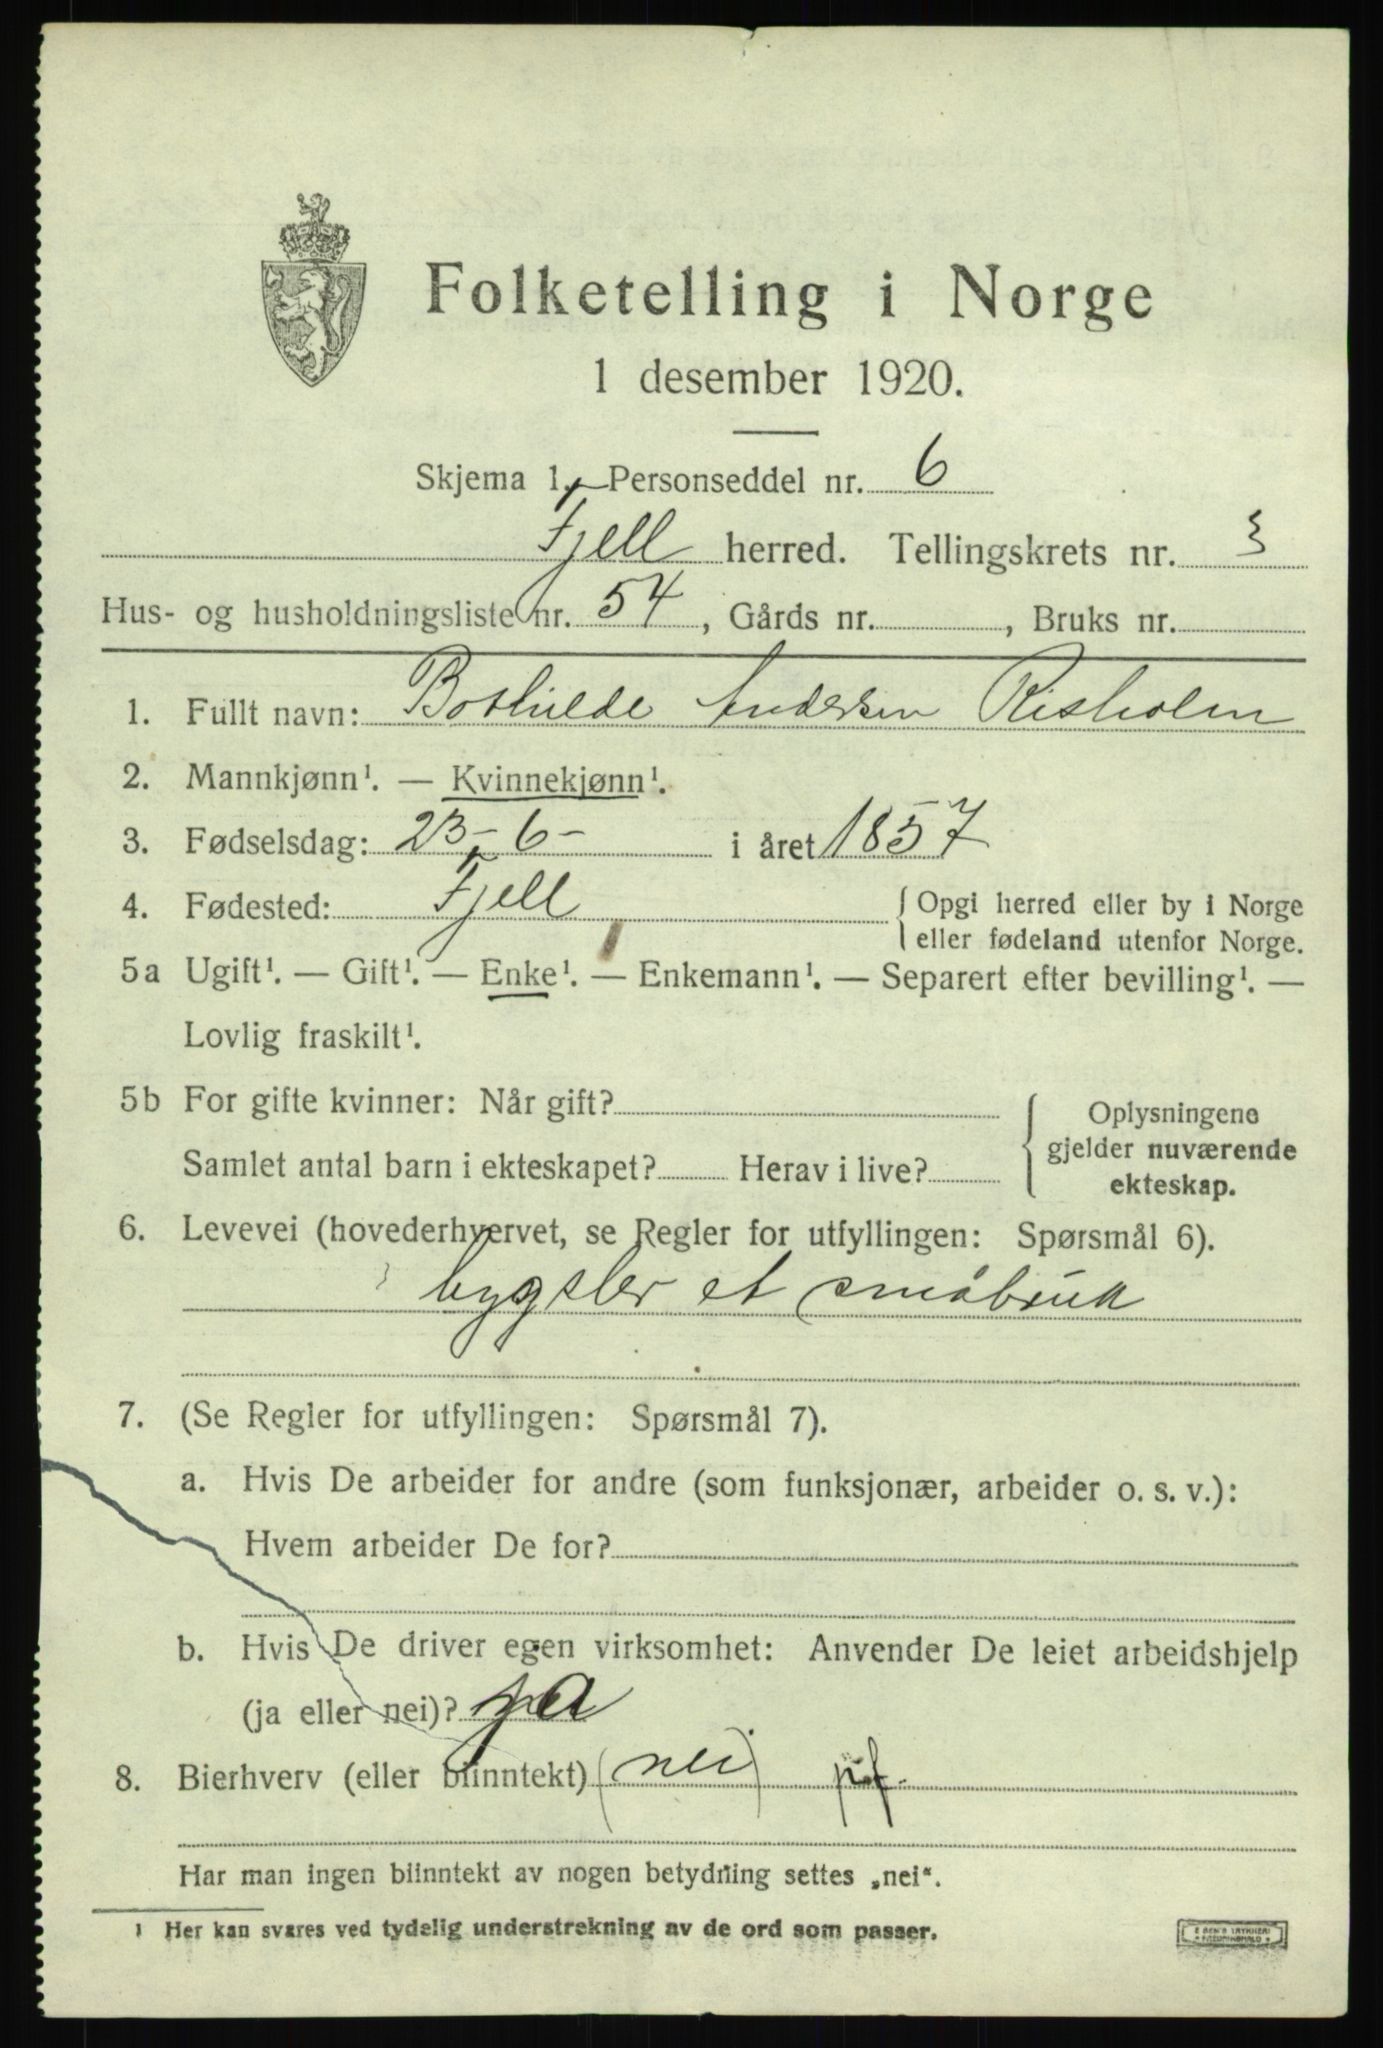 Folketelling i Norge
1 desember 1920.
Skjema 1. Personseddel nr. 6
Fjell herred. Tellingskrets nr. 3
Hus- og husholdningsliste nr. 54, Gårds nr. , Bruks nr.
1. Fullt navn: Bothilde Andersen Risholm
2. Mannkjønn¹. — Kvinnekjønn¹.
3. Fødselsdag: 23-6- i året 1857
4. Fødested: Fjell { Opgi herred eller by i Norge
eller fødeland utenfor Norge.
5a Ugift¹. — Gift¹. — Enke¹. — Enkemann¹. — Separert efter bevilling¹. —
Lovlig fraskilt¹.
5b For gifte kvinner: Når gift? { Oplysningene
gjelder nuværende
Samlet antal barn i ekteskapet? Herav i live?
ekteskap.
6. Levevei (hovederhvervet, se Regler for utfyllingen: Spørsmål 6).
bygsler et småbruk
7. (Se Regler for utfyllingen: Spørsmål 7).
a. Hvis De arbeider for andre (som funksjonær, arbeider o. s. v.):
Hvem arbeider De for?
b. Hvis De driver egen virksomhet: Anvender De leiet arbeidshjelp
(ja eller nei)? ja
8. Bierhverv (eller biinntekt) (nei)
Har man ingen biinntekt av nogen betydning settes „nei“.
¹ Her kan svares ved tydelig understrekning av de ord som passer.